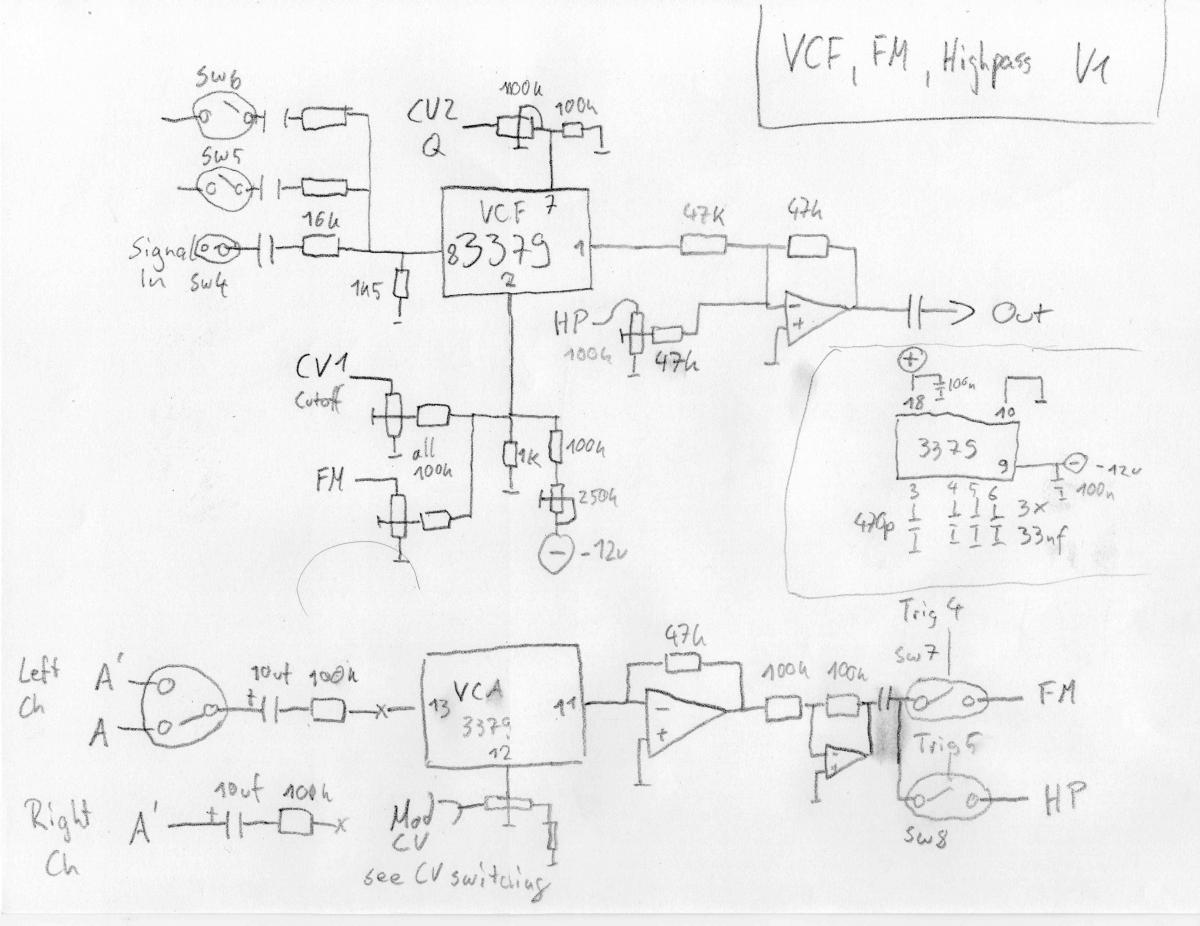 VCF, FM, Highpass V1
SW6
SW5
16k
Signal
In
SW4
1k5
CV2
Q
100k
100k
VCF 7
8 3379 1
2
47K
47k
HP
100k
47k
Out
CV1
Cutoff
all
100k
FM
1K
100k
250k
-12v
+
100n
18
10
3379
9
-12v
100n
3 4 5 6
470p
3x
33nf
Left
Ch
A'
A
10uf
100k
VCA
13
11
3379
12
47k
100k
100k
Trig 4
SW7
FM
Trig 5
HP
SW8
Right
Ch
A'
10uf
100k
x
Mod
CV
see CV switching